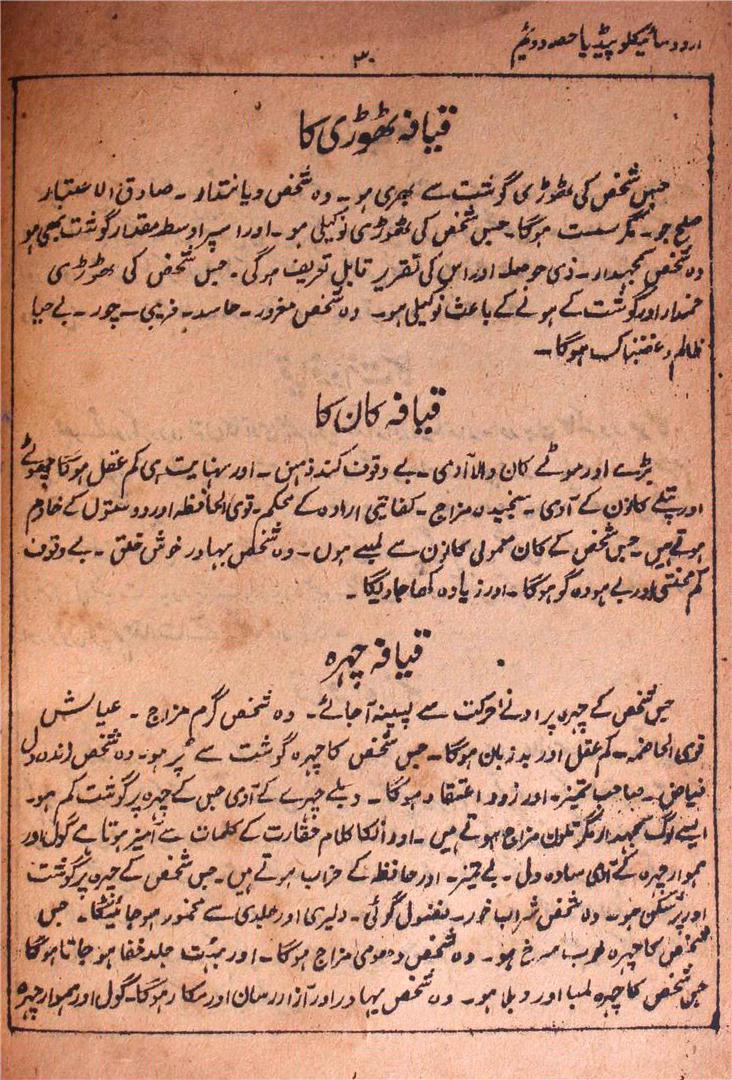 اردو سائیکلو پیڈیا حصہ دوئیم
۳۰
قیافہ ٹھوڑی کا
جس شخص کی ٹھوڑی گوشت سے بھری ہو۔ وہ شخص دیانتدار۔ صادق الاعتبار
صلح جو۔ مگر سست ہوگا۔ جس شخص کی ٹھوڑی نوکیلی ہو۔ اور اسپر اوسط مقدار گوشت بھی ہو
وہ شخص سمجہدار۔ ذی حوصلہ اور اس کی تقریر قابل تعریف ہوگی۔ جس شخص کی ٹھوڑی
خمدار اور گوشت کے ہونے کے باعث نوکیلی ہو۔ وہ شخص مغرور۔ حاسد۔ فریبی۔ چور۔ بے حیا
ظالم و غضبناک ہوگا۔
قیافہ کان کا
بڑے اور موٹے کان والا آدمی۔ بے وقوف کند ذہن۔ اور نہایت ہی کم عقل ہوگا چھوٹے
اور پتلے کانوں کے آدمی۔ سنجیدہ مزاج۔ کفائتی ارادہ کے محکم۔ قوی الحافظہ اور دوستوں کے خادم
ہوتے ہیں۔ جس شخص کے کان معمولی کانوں سے لمبے ہوں۔ وہ شخص بہادر خوش خلق۔ بے وقوف
کم محنتی اور بے ہودہ گو ہوگا۔ اور زیادہ کھا جاویگا۔
قیافہ چہرہ
جس شخص کے چہرہ پر ادنے احرکت سے پسینہ آجائے۔ وہ شخص گرم مزاج۔ عیاش
قوی الہاضمہ۔ کم عقل اور بد زبان ہوگا۔ جس شخص کا چہرہ گوشت سے پر ہو۔ وہ شخص زندہ دل
فیاض۔ صاحب تمیز۔ اور زود اعتقاد ہوگا۔ دبلے چہرے کے آدمی جس کے چہرہ پر گوشت کم ہو۔
ایسے لوگ سمجہدار مگر تلون مزاج ہوتے ہیں۔ اور انکا کلام حقارت کے کلمات سے آمیز ہوتا ہے گول اور
ہموار چہرہ کے آدمی سادہ دل۔ بے تمیز۔ اور حافظہ کے خراب ہوتے ہیں۔ جس شخص کے چہرہ پر گوشت
اور پرشکن ہو۔ وہ شخص شراب خور۔ فضول گوئی۔ دلیری اور جلدی سے مخمور ہو جائیگا۔ جس
شخص کا چہرہ خوب سرخ ہو۔ وہ شخص دموی مزاج ہوگا۔ اور بہت جلد خفا ہو جاتا ہوگا
جس شخص کا چہرہ لمبا اور دبلا ہو۔ وہ شخص بہادر اور آزار رسان اور مکار ہوگا۔ گول اور ہموار چہرہ